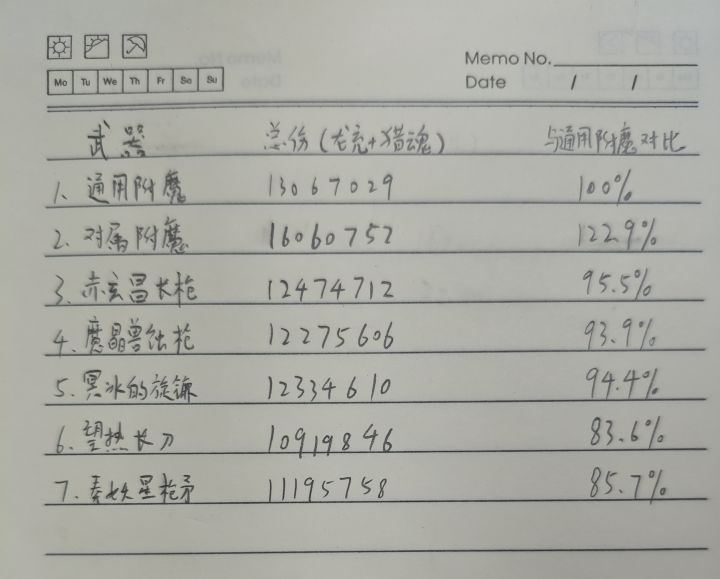 Memo No.
Mo Tu We Th Fr Sa Su
Date / /
武器 总伤(龙充+猎魂) 与通用附魔对比
1. 通用附魔 13067029 100%
2. 对属附魔 16060752 122.9%
3. 赤玄昌长枪 12474712 95.5%
4. 魔晶兽蚀枪 12275606 93.9%
5. 冥冰的旋镰 12334610 94.4%
6. 望热长刀 10919846 83.6%
7. 秦妖星枪矛 11195758 85.7%